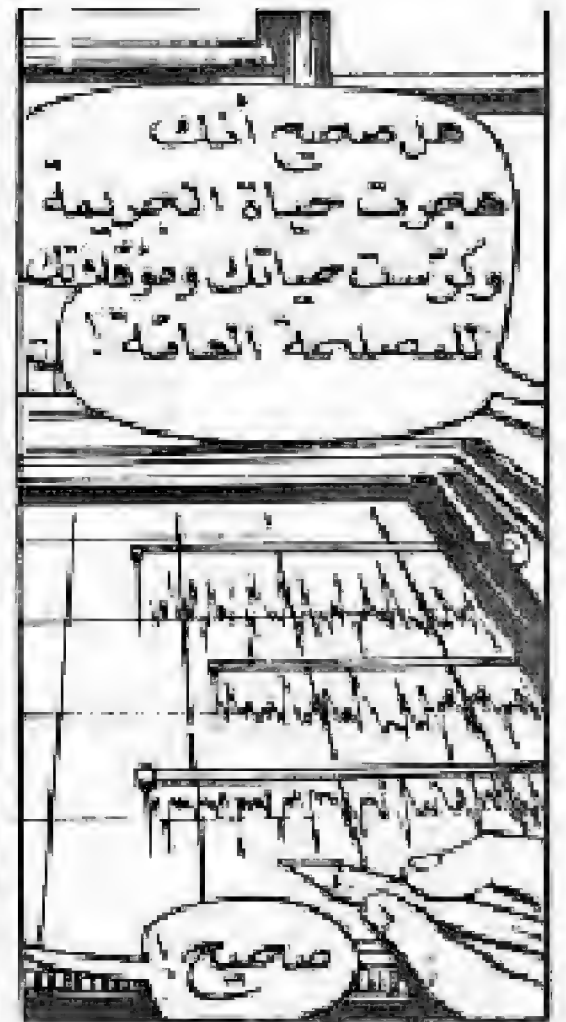 هل صحيح أنك
هجرت حياة الجريمة
وكرّست حياتك ومؤهلاتك
للمصلحة العامّة؟!
صحيح!